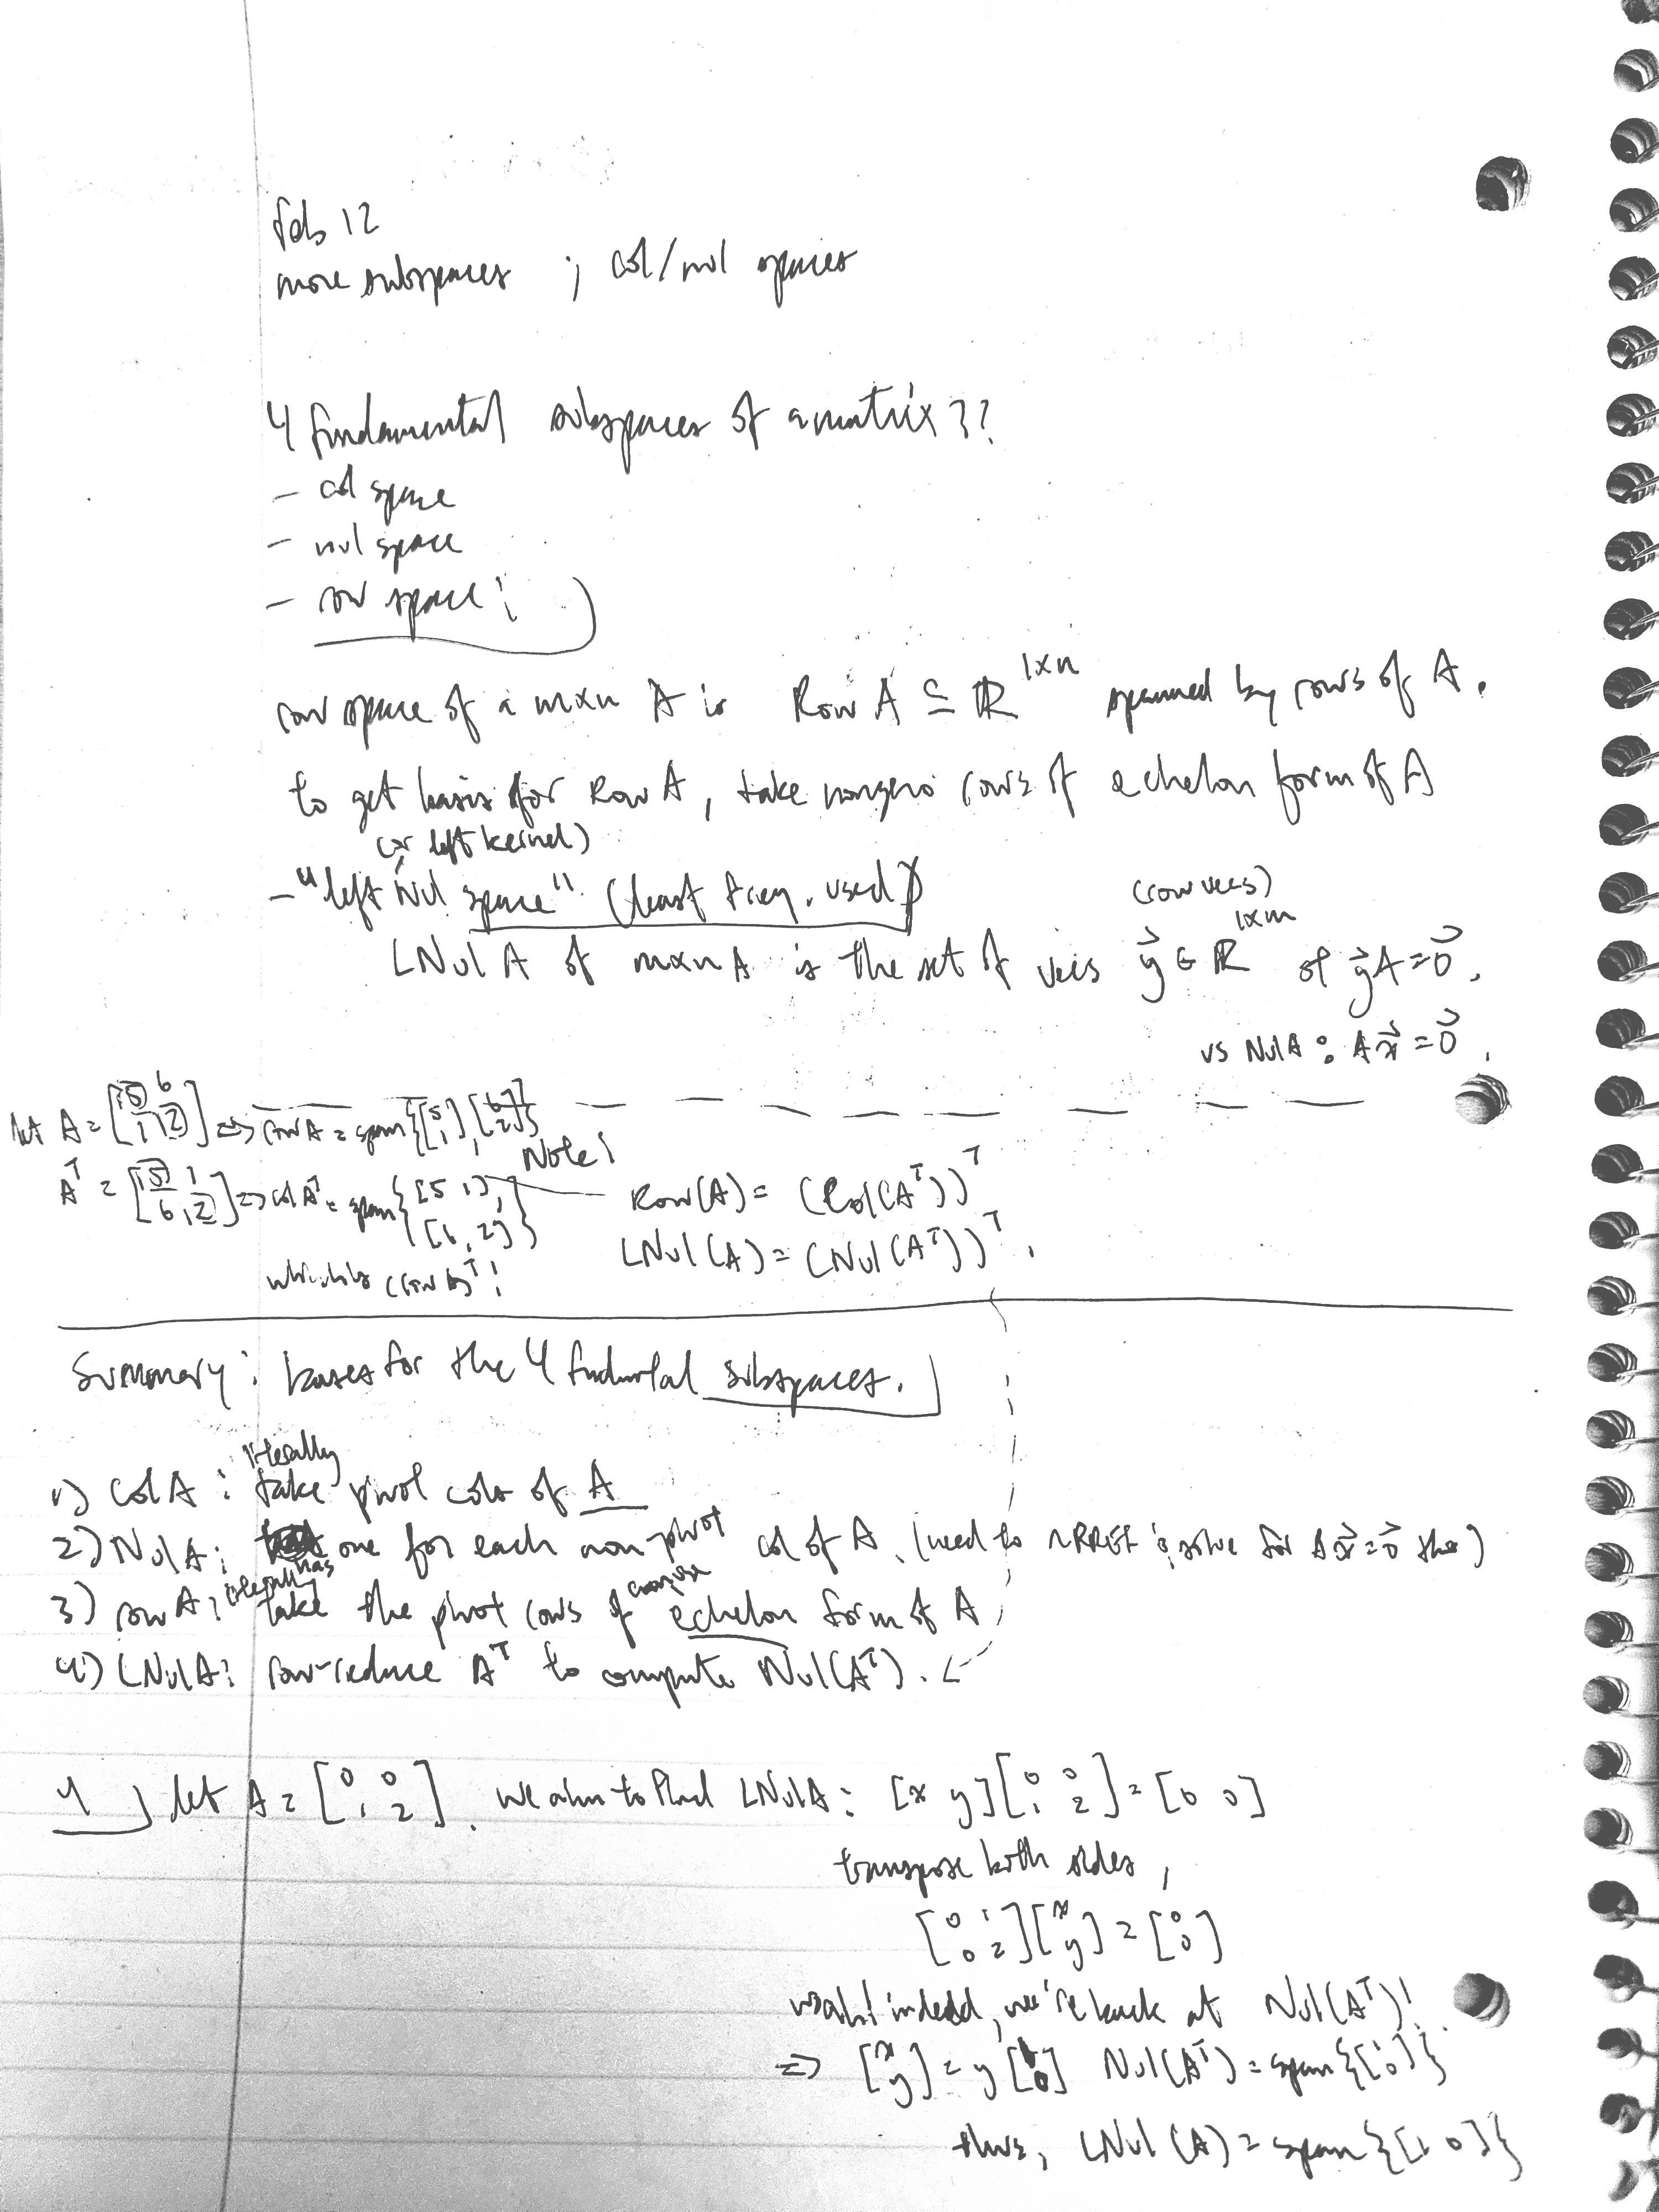 feb 12
more subspaces ; col/nul spaces
4 fundamental subspaces of a matrix??
- col space
- nul space
- row space:
row space of a mxn A is Row A ⊆ ℝ^{1xn} spanned by rows of A.
to get basis for Row A, take nonzero rows of echelon form of A
(or left kernel)
- "left Nul space" (least freq. used)
(row vecs)
LNul A of mxn A is the set of vecs \vec{y} ∈ ℝ^{1xm} st \vec{y}A = \vec{0}.
vs Nul A : A\vec{x} = \vec{0}.
let A = [5 6; 1 2] => row A = span{[5; 1], [6; 2]}
Note!
A^T = [5 1; 6 2] => col A^T = span{[5 1], [6, 2]}
which is (row A)^T!
Row(A) = (Col(A^T))^T
LNul(A) = (Nul(A^T))^T.
Summary: bases for the 4 fundmtal subspaces.
1) Col A : literally take pivot cols of A
2) Nul A : has one for each non-pivot col of A. (need to ~RREF & solve for A\vec{x} = \vec{0} tho)
3) row A : literally take the pivot rows of echelon form of A
4) LNul A : row-reduce A^T to compute Nul(A^T).
4) let A = [0 0; 1 2]. we aim to find LNul A : [x y][0 0; 1 2] = [0 0]
transpose both sides,
[0 1; 0 2][x; y] = [0; 0]
woah! indeed, we're back at Nul(A^T)!
=> [x; y] = y[1; 0] Nul(A^T) = span{[1; 0]}
thus, LNul(A) = span{[1 0]}